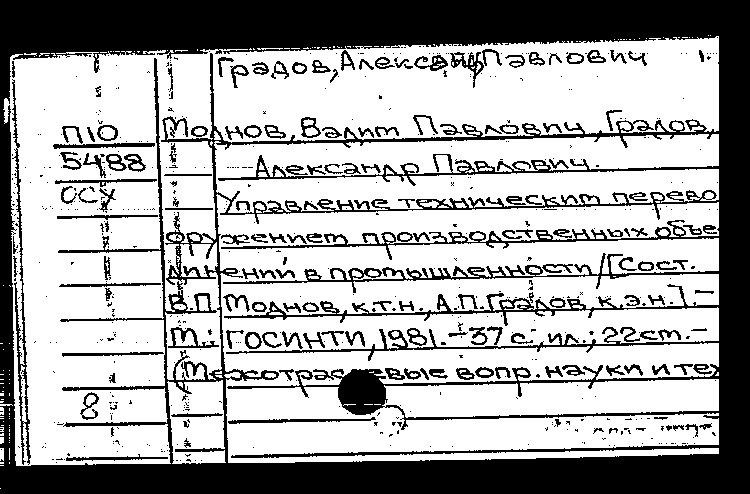 Градов, Александр Павлович 1.
П10 Моднов, Вадим Павлович, Градов,
5488 Александр Павлович.
ОСХ Управление техническим перево
оружением производственных объе
динений в промышленности/[Сост.
В.П. Моднов, к.т.н., А.П.Градов, к.э.н.].-
М.: ГОСИНТИ, 1981.-37 с., ил.; 22см.-
(Межотраслевые вопр. науки и тех
8